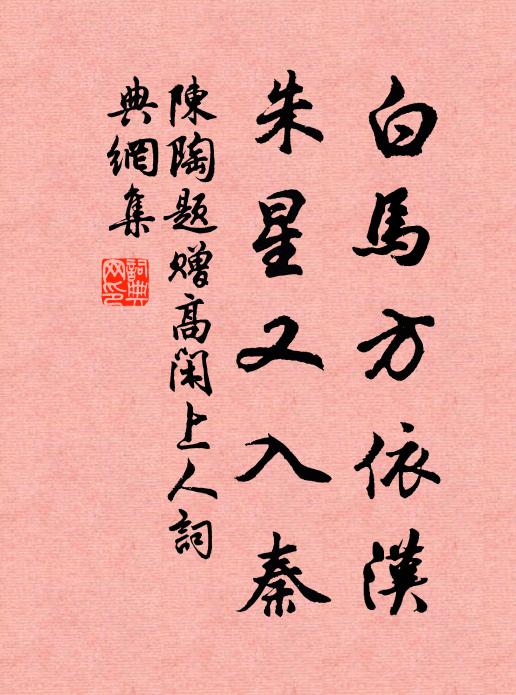 白馬方依漢
朱星又入秦
陳陶題贈高閑上人詞
典網集
詞典
网印